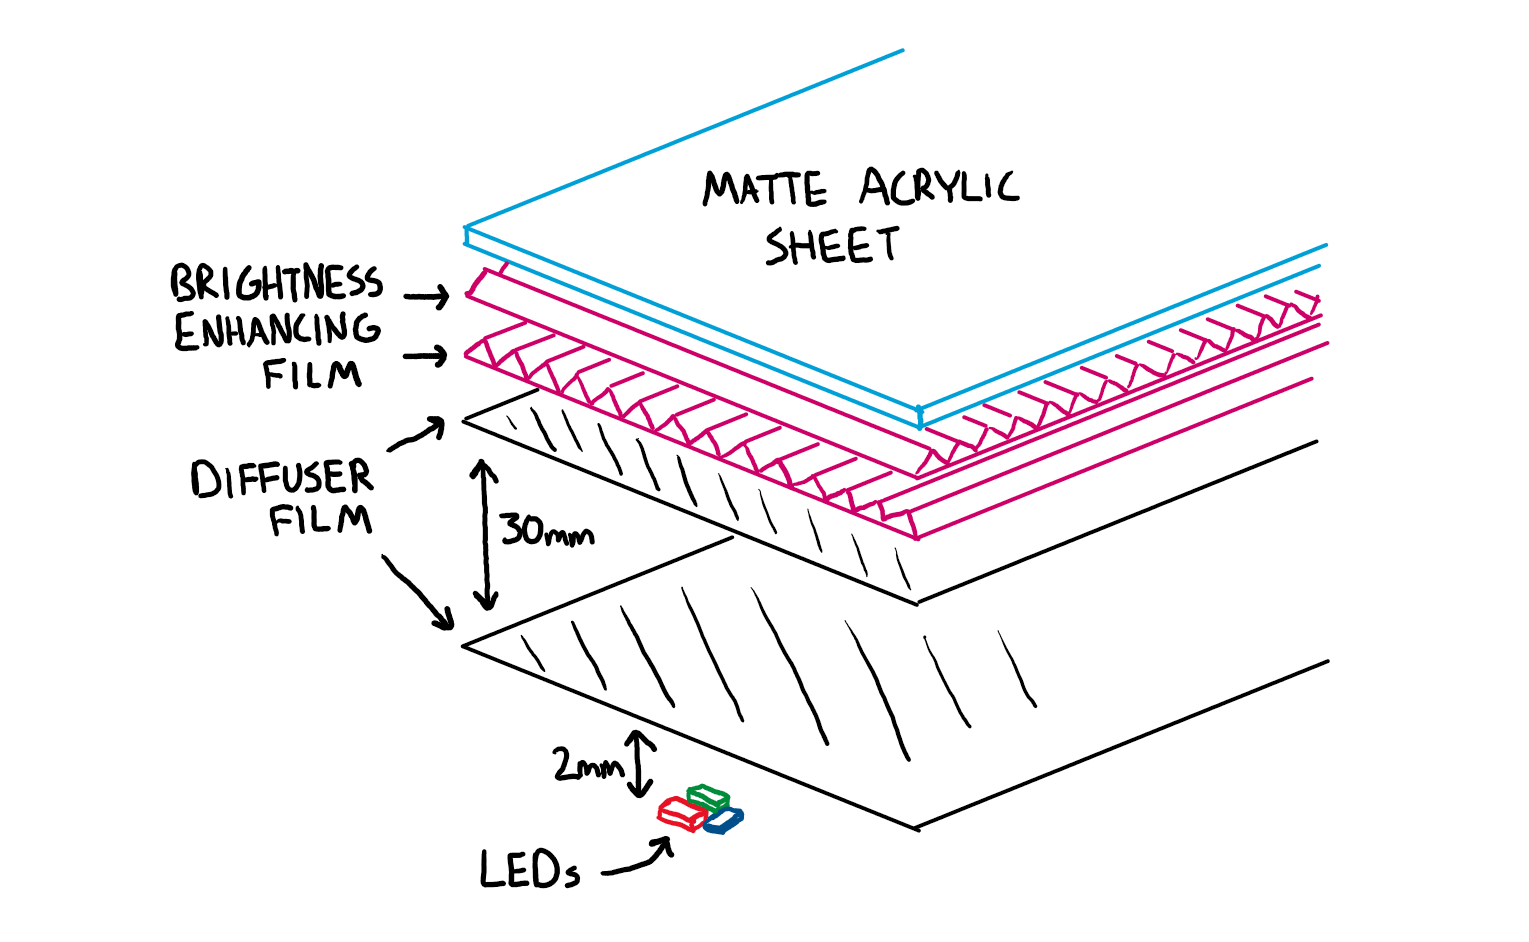 MATTE ACRYLIC
SHEET
BRIGHTNESS
ENHANCING
FILM
DIFFUSER
FILM
30mm
2mm
LEDs